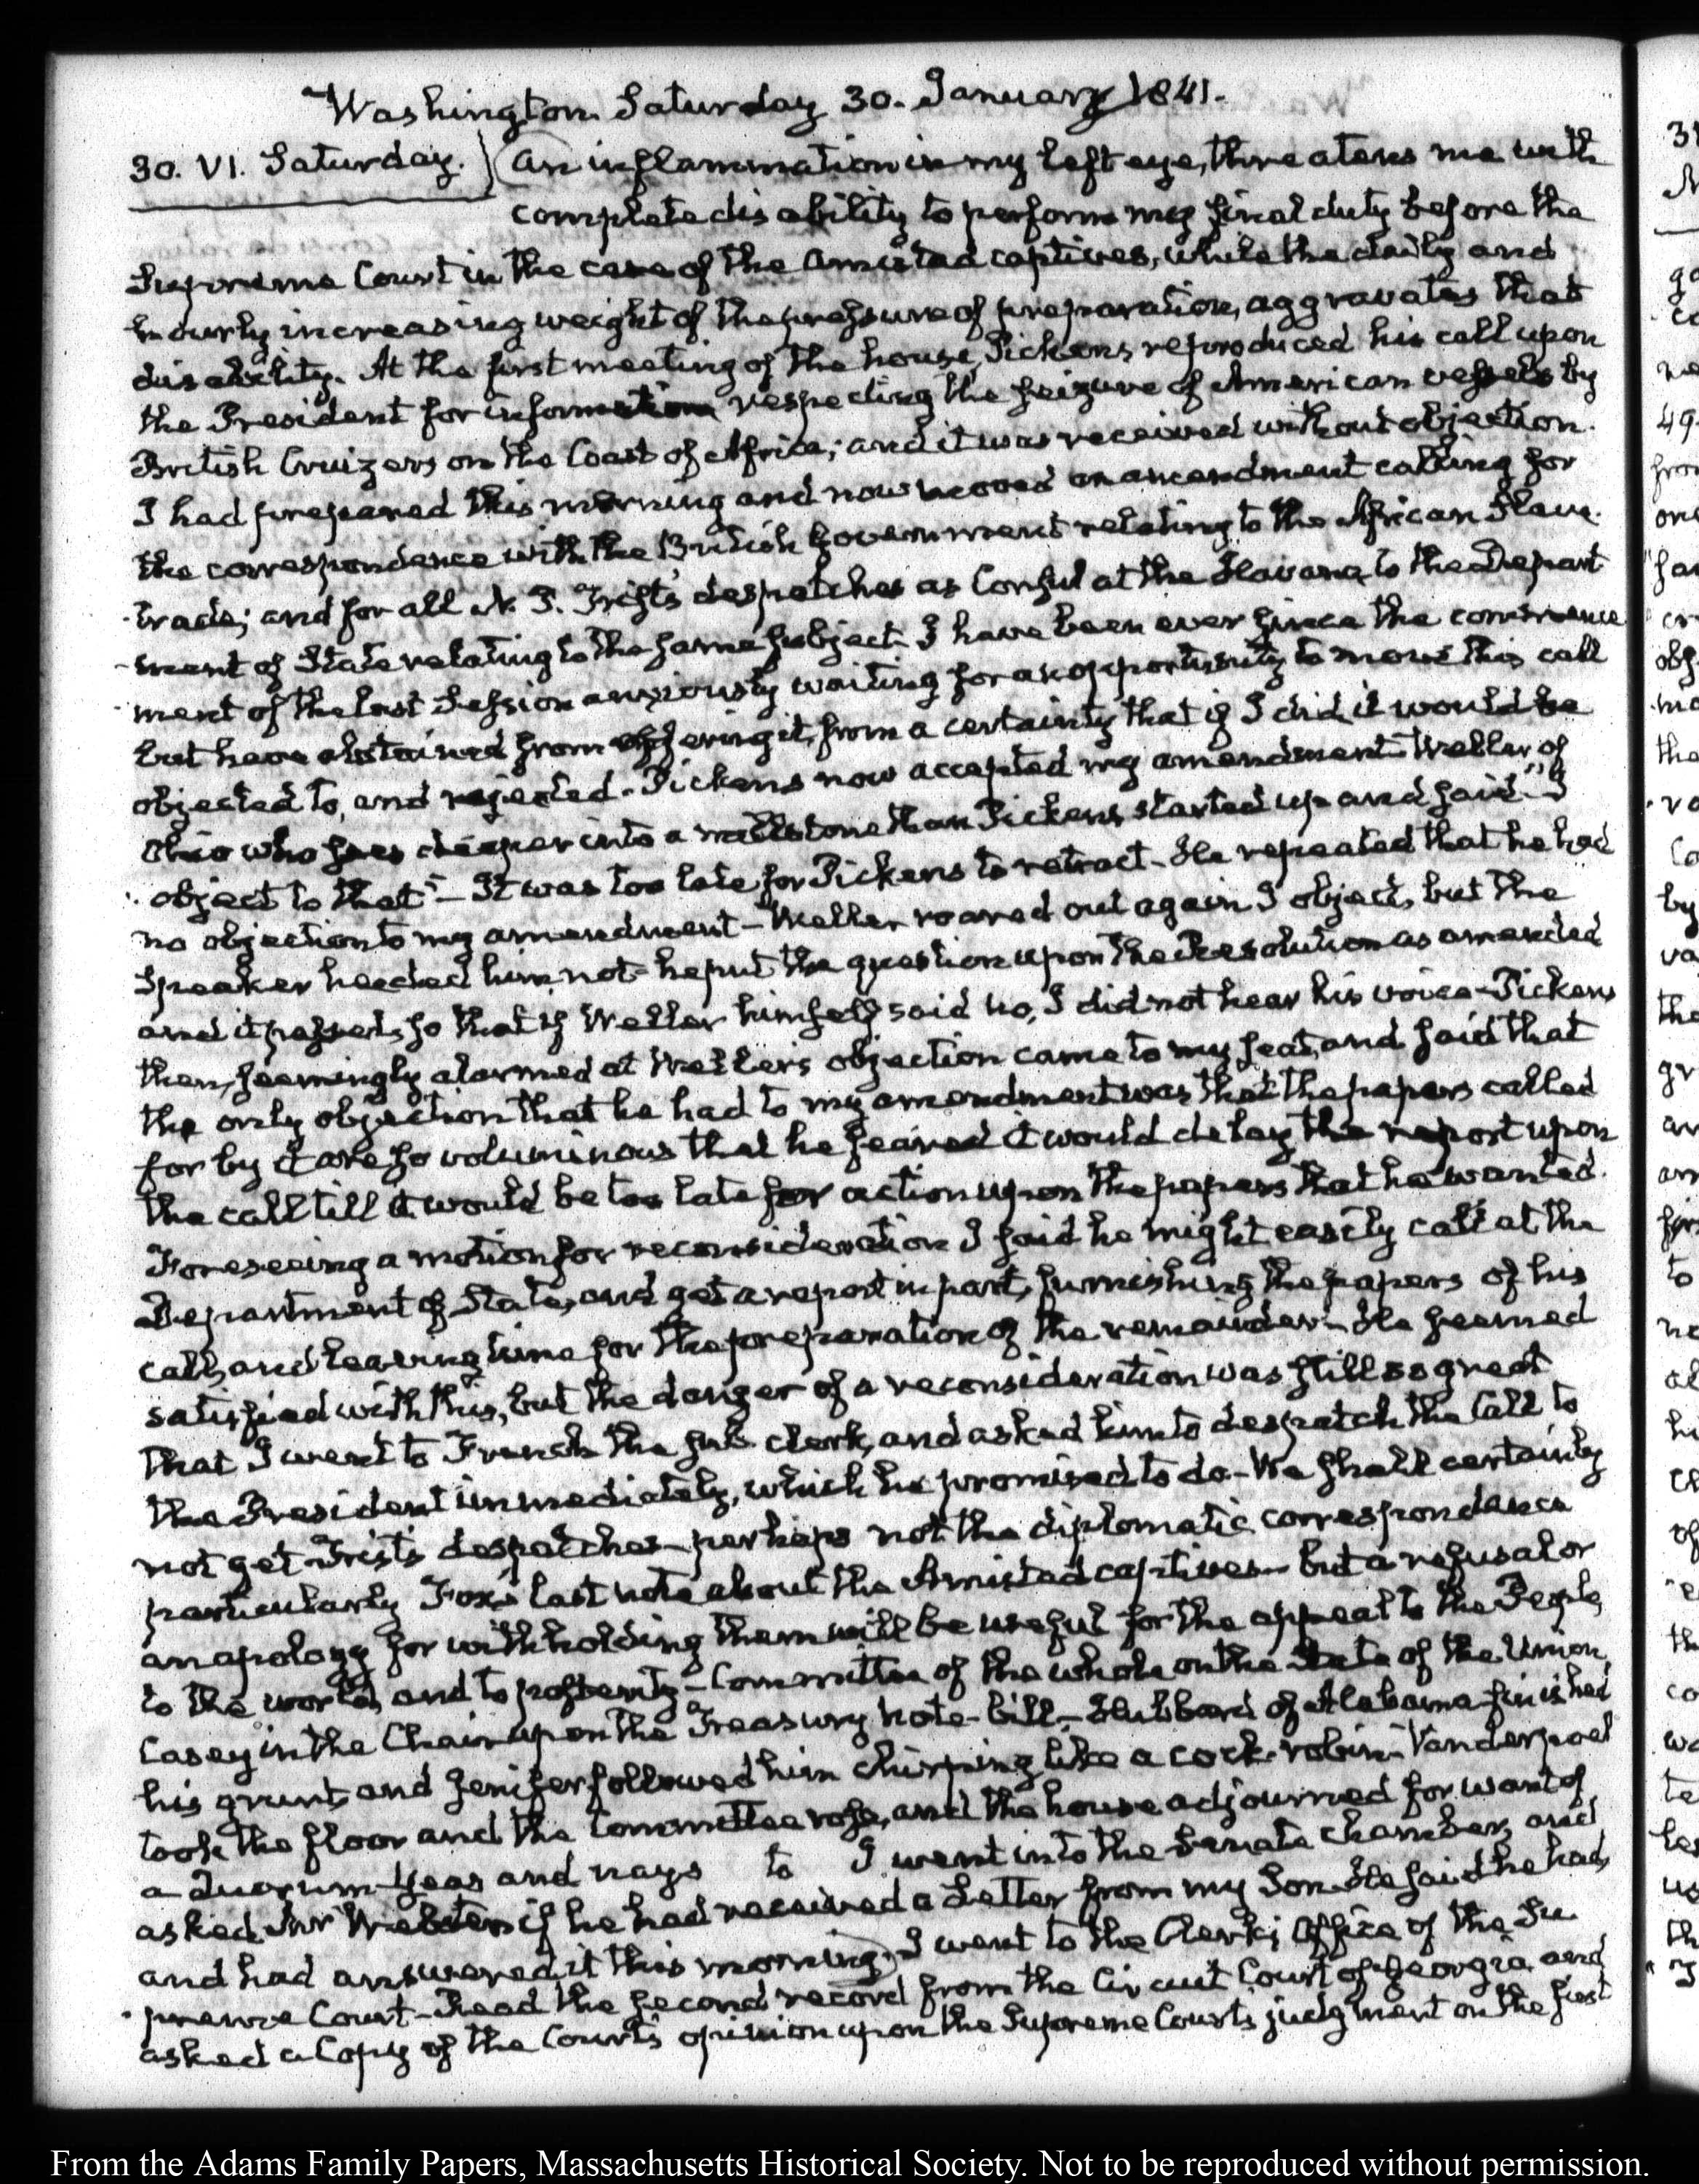 Washington Saturday 30. January 1841.
30. VI. Saturday. An inflammation in my left eye, threatens me with
complete disability to perform my final duty before the
Supreme Court in the case of the Amistad captives, while the daily and
hourly increasing weight of the pressure of preparation, aggravates that
disability. At the first meeting of the house, Pickens reproduced his call upon
the President for information respecting the seizure of American vessels by
British Cruizers on the Coast of Africa; and it was received without objection.
I had prepared this morning and now moved an amendment calling for
the correspondence with the British Government relating to the African Slave
trade; and for all N. P. Trist's despatches as Consul at the Havana to the Depart
ment of State relating to the same subject. I have been ever since the commence
ment of the last Session anxiously waiting for an opportunity to move this call
but have abstained from offering it, from a certainty that if I did it would be
objected to, and rejected. Pickens now accepted my amendment. Weller of
Ohio who sees deeper into a millstone than Pickens, started up and said "I
object to that" - It was too late for Pickens to retract - He repeated that he had
no objection to my amendment - Weller roared out again I object, but the
Speaker heeded him not - he put the question upon the Resolution as amended
and it passed, so that if Weller himself said no, I did not hear his voice - Pickens
then, seemingly alarmed at Weller's objection came to my seat, and said that
the only objection that he had to my amendment was that the papers called
for by it are so voluminous that he feared it would delay the report upon
the call till it would be too late for action upon the papers that he wanted.
Foreseeing a motion for reconsideration I said he might easily call at the
Department of State, and get a report in part, furnishing the papers of his
call, and leaving time for the preparation of the remainder - He seemed
satisfied with this, but the danger of a reconsideration was still so great
that I went to French the sub. clerk, and asked him to despatch the Call to
the President immediately, which he promised to do - We shall certainly
not get Trist's despatches - perhaps not the diplomatic correspondence
particularly Fox's last note about the Amistad captives - but a refusal or
an apology for withholding them will be useful for the appeal to the People,
to the world, and to posterity - Committee of the whole on the State of the Union,
Casey in the Chair upon the Treasury note-bill - Hubbard of Alabama finished
his grunt, and Jenifer followed him chirping like a cock-robin - Vanderpoel
took the floor and the Committee rose, and the house adjourned for want of
a Quorum Yeas and nays to I went into the Senate chamber, and
asked Mr Webster if he had received a Letter from my Son - He said he had,
and had answered it this morning. I went to the Clerk's Office of the Su
preme Court - Read the second record from the Circuit Court of Georgia and
asked a Copy of the Court's opinion upon the Supreme Court's judgment on the first
From the Adams Family Papers, Massachusetts Historical Society. Not to be reproduced without permission.